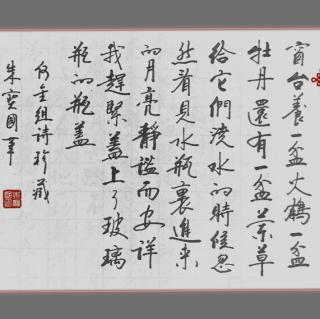 窗台養一盆火鶴一盆
牡丹還有一盆蘭草
給它們澆水的時候忽
然看見水瓶裏進來
的月亮靜謐而安詳
我趕緊蓋上了玻璃
瓶的瓶蓋
組詩珍藏
朱寶國